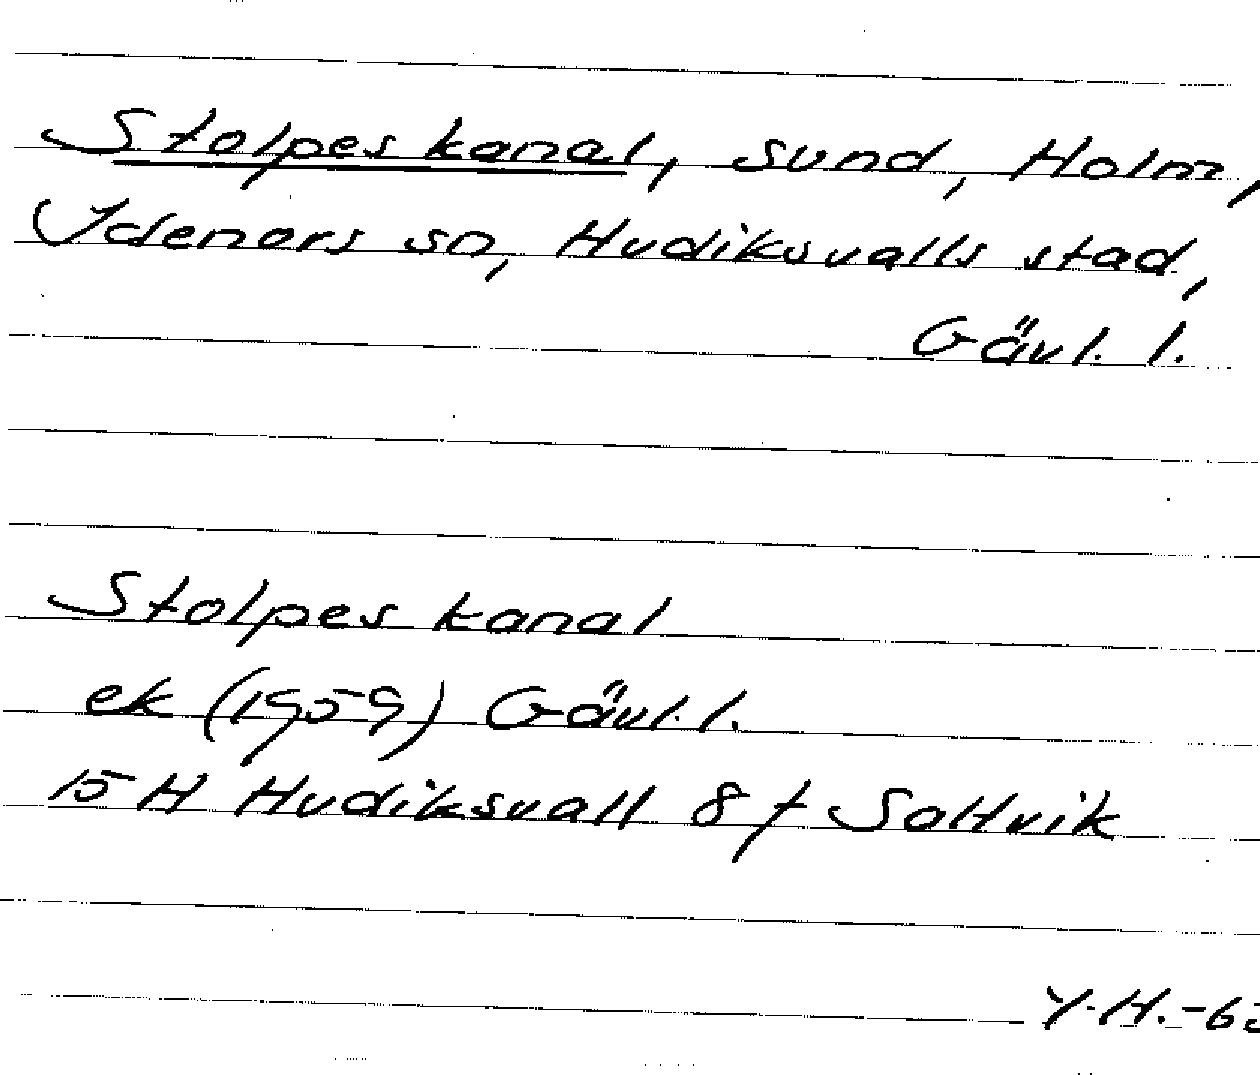 Stolpes kanal, sund, Holm,
Idenors sn, Hudiksvalls stad,
Gävl. l.
Stolpes kanal
ek (1959) Gävl. l.
15 H Hudiksvall 8 f Saltvik
Y.H. -63